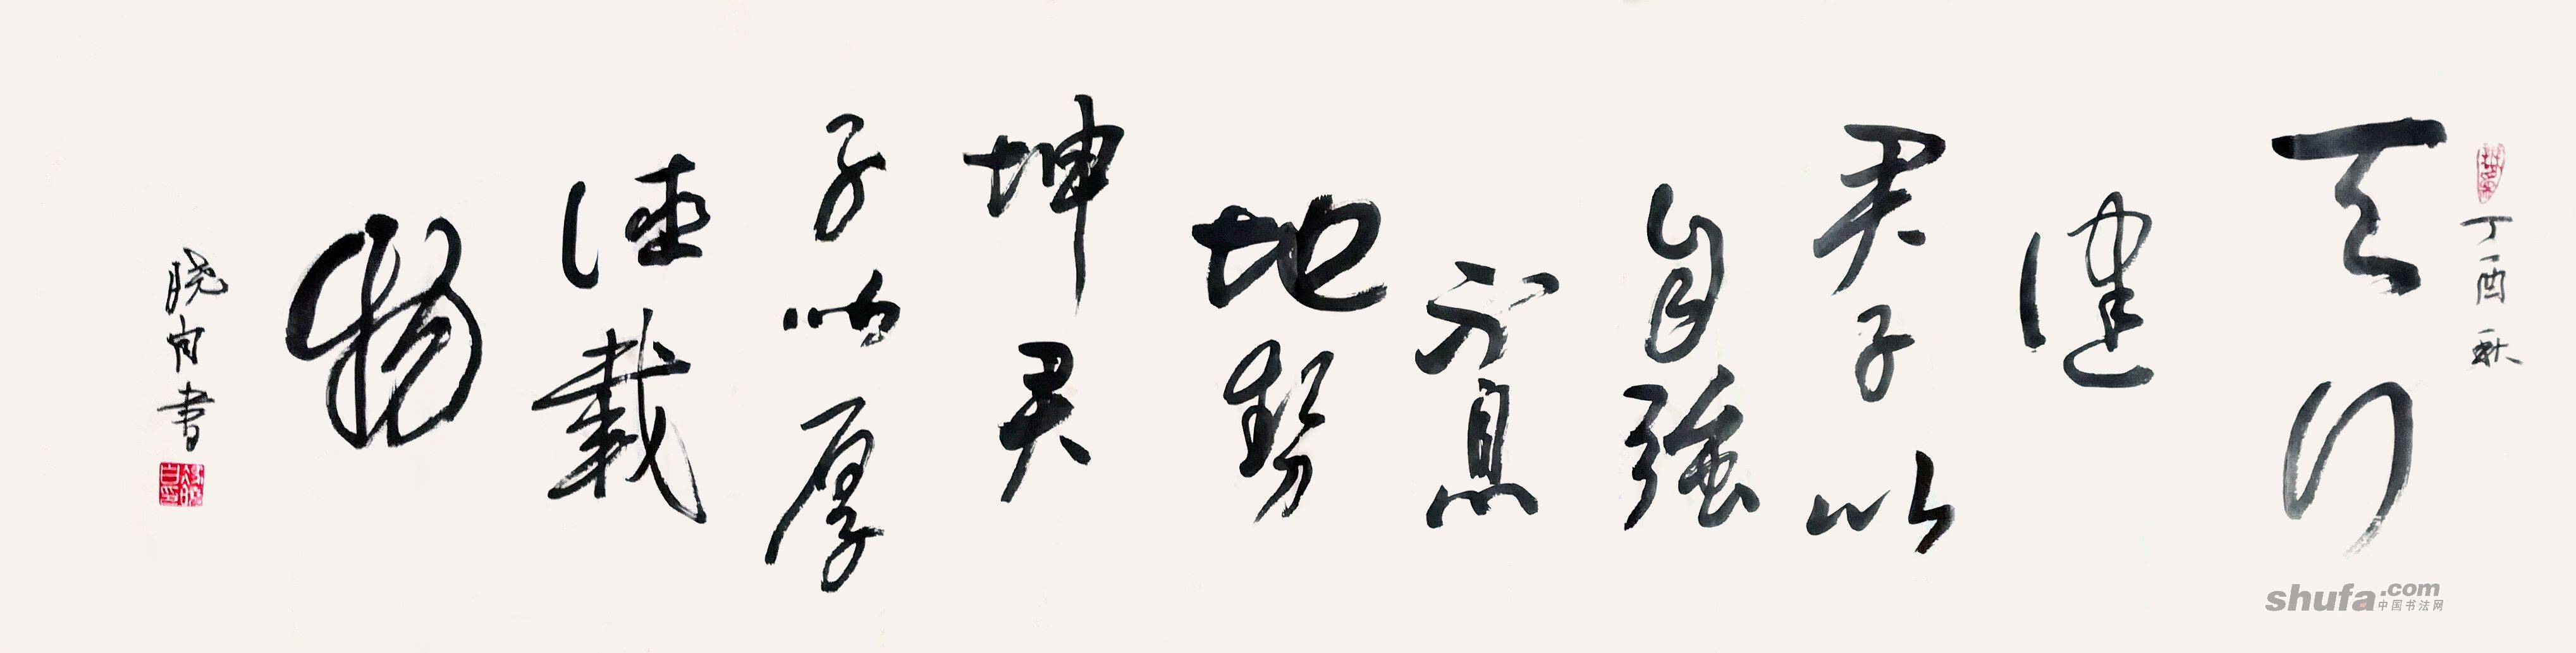 丁酉秋
天行
健
君子以
自强
不息
地势
坤君
子以厚
德载
物
晓白书
shufa.com
中国书法网